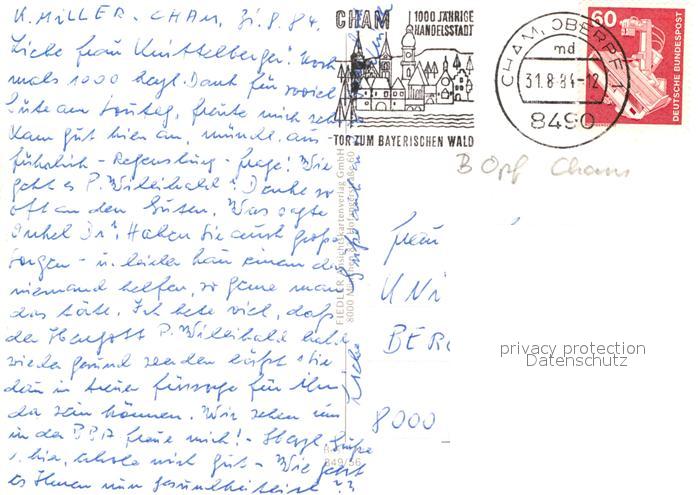 K. MILLER - CHAM, 31.8.84.
Liebe Frau Knittelberger! Noch
mals 1000 hzgl. Dank für soviel
Gute am Sonntag, freute mich sehr
Kam gut hier an, mündl. aus-
führlich - Regensburg - Frage! Wie
geht es P. Willibald? Danke so
oft an den Guten. Was sagte
Onkel Dr.? Haben Sie auch große
Sorgen - u. leider kann einem da
niemand helfen, so gerne man
das täte. Ich bete viel, daß
der Herrgott P. Willibald bald
wieder gesund werden läßt & Sie
dann in treuer Fürsorge für ihn
da sein können. Wir sehen uns
in der freue mich! - Herzl. Grüße
v. hier, erhole mich gut - Wie geht
es Ihnen nun gesundheitlich??
Liebe Grüße
CHAM
1000 JÄHRIGE
HANDELSSTADT
TOR ZUM BAYERISCHEN WALD
CHAM, OBERPF 1
md
31.8.84-12
8490
60
DEUTSCHE BUNDESPOST
B Opf Cham
FIEDLER Ansichtskartenverlag GmbH
8000 München
849/56
Frau
UNI
BER
8000
privacy protection
Datenschutz